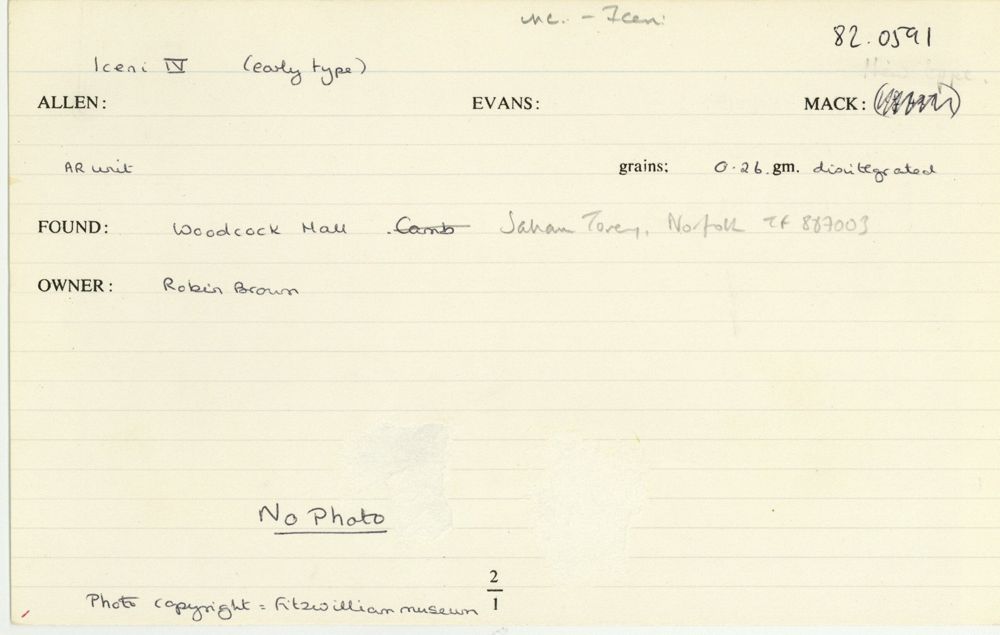 unc. - Iceni
82.0591
Iceni IV (early type)
New type.
ALLEN: EVANS: MACK:
AR unit grains: 0.26.gm. disintegrated
FOUND: Woodcock Hall . Camb Saham Toney, Norfolk TF 887003
OWNER: Robin Brown
No Photo
2
1
Photo copyright = Fitzwilliam museum